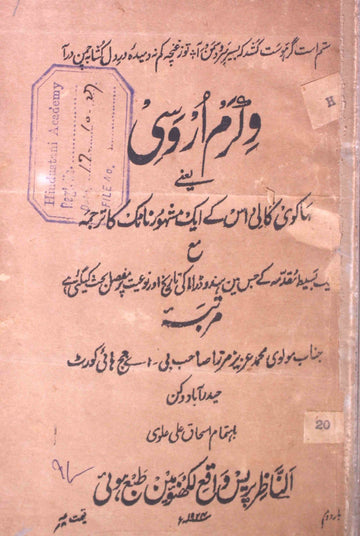 ستم است گر ہوست کشد کہ بسیر سرو و سمن در آ تو ز غنچہ کم نہ دمیدہ در دل کشا بچمن در آ
وکرم اُروسی
یعنے
مہاکوی کالی داس کے ایک مشہور ناٹک کا ترجمہ
مع
ایک بسیط مقدمہ کے جس مین ہندو ڈراما کی تاریخ اور نوعیت پر مفصل بحث کیگئی ہے
مرتبہ
جناب مولوی محمد عزیز مرزا صاحب بی۔ اے جج ہائی کورٹ
حیدرآباد دکن
باہتمام اسحاق علی علوی
الناظر پریس واقع لکھنؤ مین طبع ہوئی
بار دوم
قیمت
Hindustani Academy
Date 17.10.27
FILE No.
H
20